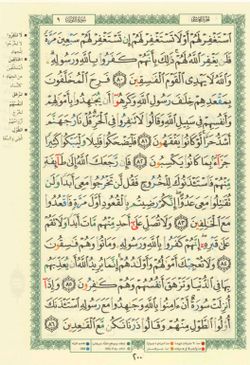 ٱسْتَغْفِرْ لَهُمْ أَوْ لَا تَسْتَغْفِرْ لَهُمْ إِن تَسْتَغْفِرْ لَهُمْ سَبْعِينَ مَرَّةً
فَلَن يَغْفِرَ ٱللَّهُ لَهُمْ ذَٰلِكَ بِأَنَّهُمْ كَفَرُوا۟ بِٱللَّهِ وَرَسُولِهِۦ
وَٱللَّهُ لَا يَهْدِى ٱلْقَوْمَ ٱلْفَـٰسِقِينَ ٨٠ فَرِحَ ٱلْمُخَلَّفُونَ
بِمَقْعَدِهِمْ خِلَـٰفَ رَسُولِ ٱللَّهِ وَكَرِهُوٓا۟ أَن يُجَـٰهِدُوا۟ بِأَمْوَٰلِهِمْ
وَأَنفُسِهِمْ فِى سَبِيلِ ٱللَّهِ وَقَالُوا۟ لَا تَنفِرُوا۟ فِى ٱلْحَرِّ قُلْ نَارُ جَهَنَّمَ
أَشَدُّ حَرًّا لَّوْ كَانُوا۟ يَفْقَهُونَ ٨١ فَلْيَضْحَكُوا۟ قَلِيلًا وَلْيَبْكُوا۟ كَثِيرًا
جَزَآءًۢ بِمَا كَانُوا۟ يَكْسِبُونَ ٨٢ فَإِن رَّجَعَكَ ٱللَّهُ إِلَىٰ طَآئِفَةٍ
مِّنْهُمْ فَٱسْتَـْٔذَنُوكَ لِلْخُرُوجِ فَقُل لَّن تَخْرُجُوا۟ مَعِىَ أَبَدًا وَلَن
تُقَـٰتِلُوا۟ مَعِىَ عَدُوًّا إِنَّكُمْ رَضِيتُم بِٱلْقُعُودِ أَوَّلَ مَرَّةٍ فَٱقْعُدُوا۟
مَعَ ٱلْخَـٰلِفِينَ ٨٣ وَلَا تُصَلِّ عَلَىٰٓ أَحَدٍ مِّنْهُم مَّاتَ أَبَدًا وَلَا تَقُمْ
عَلَىٰ قَبْرِهِۦٓ إِنَّهُمْ كَفَرُوا۟ بِٱللَّهِ وَرَسُولِهِۦ وَمَاتُوا۟ وَهُمْ فَـٰسِقُونَ
٨٤ وَلَا تُعْجِبْكَ أَمْوَٰلُهُمْ وَأَوْلَـٰدُهُمْ إِنَّمَا يُرِيدُ ٱللَّهُ أَن يُعَذِّبَهُم
بِهَا فِى ٱلدُّنْيَا وَتَزْهَقَ أَنفُسُهُمْ وَهُمْ كَـٰفِرُونَ ٨٥ وَإِذَآ
أُنزِلَتْ سُورَةٌ أَنْ ءَامِنُوا۟ بِٱللَّهِ وَجَـٰهِدُوا۟ مَعَ رَسُولِهِ ٱسْتَـْٔذَنَكَ
أُو۟لُوا۟ ٱلطَّوْلِ مِنْهُمْ وَقَالُوا۟ ذَرْنَا نَكُن مَّعَ ٱلْقَـٰعِدِينَ ٨٦
٢٠٠